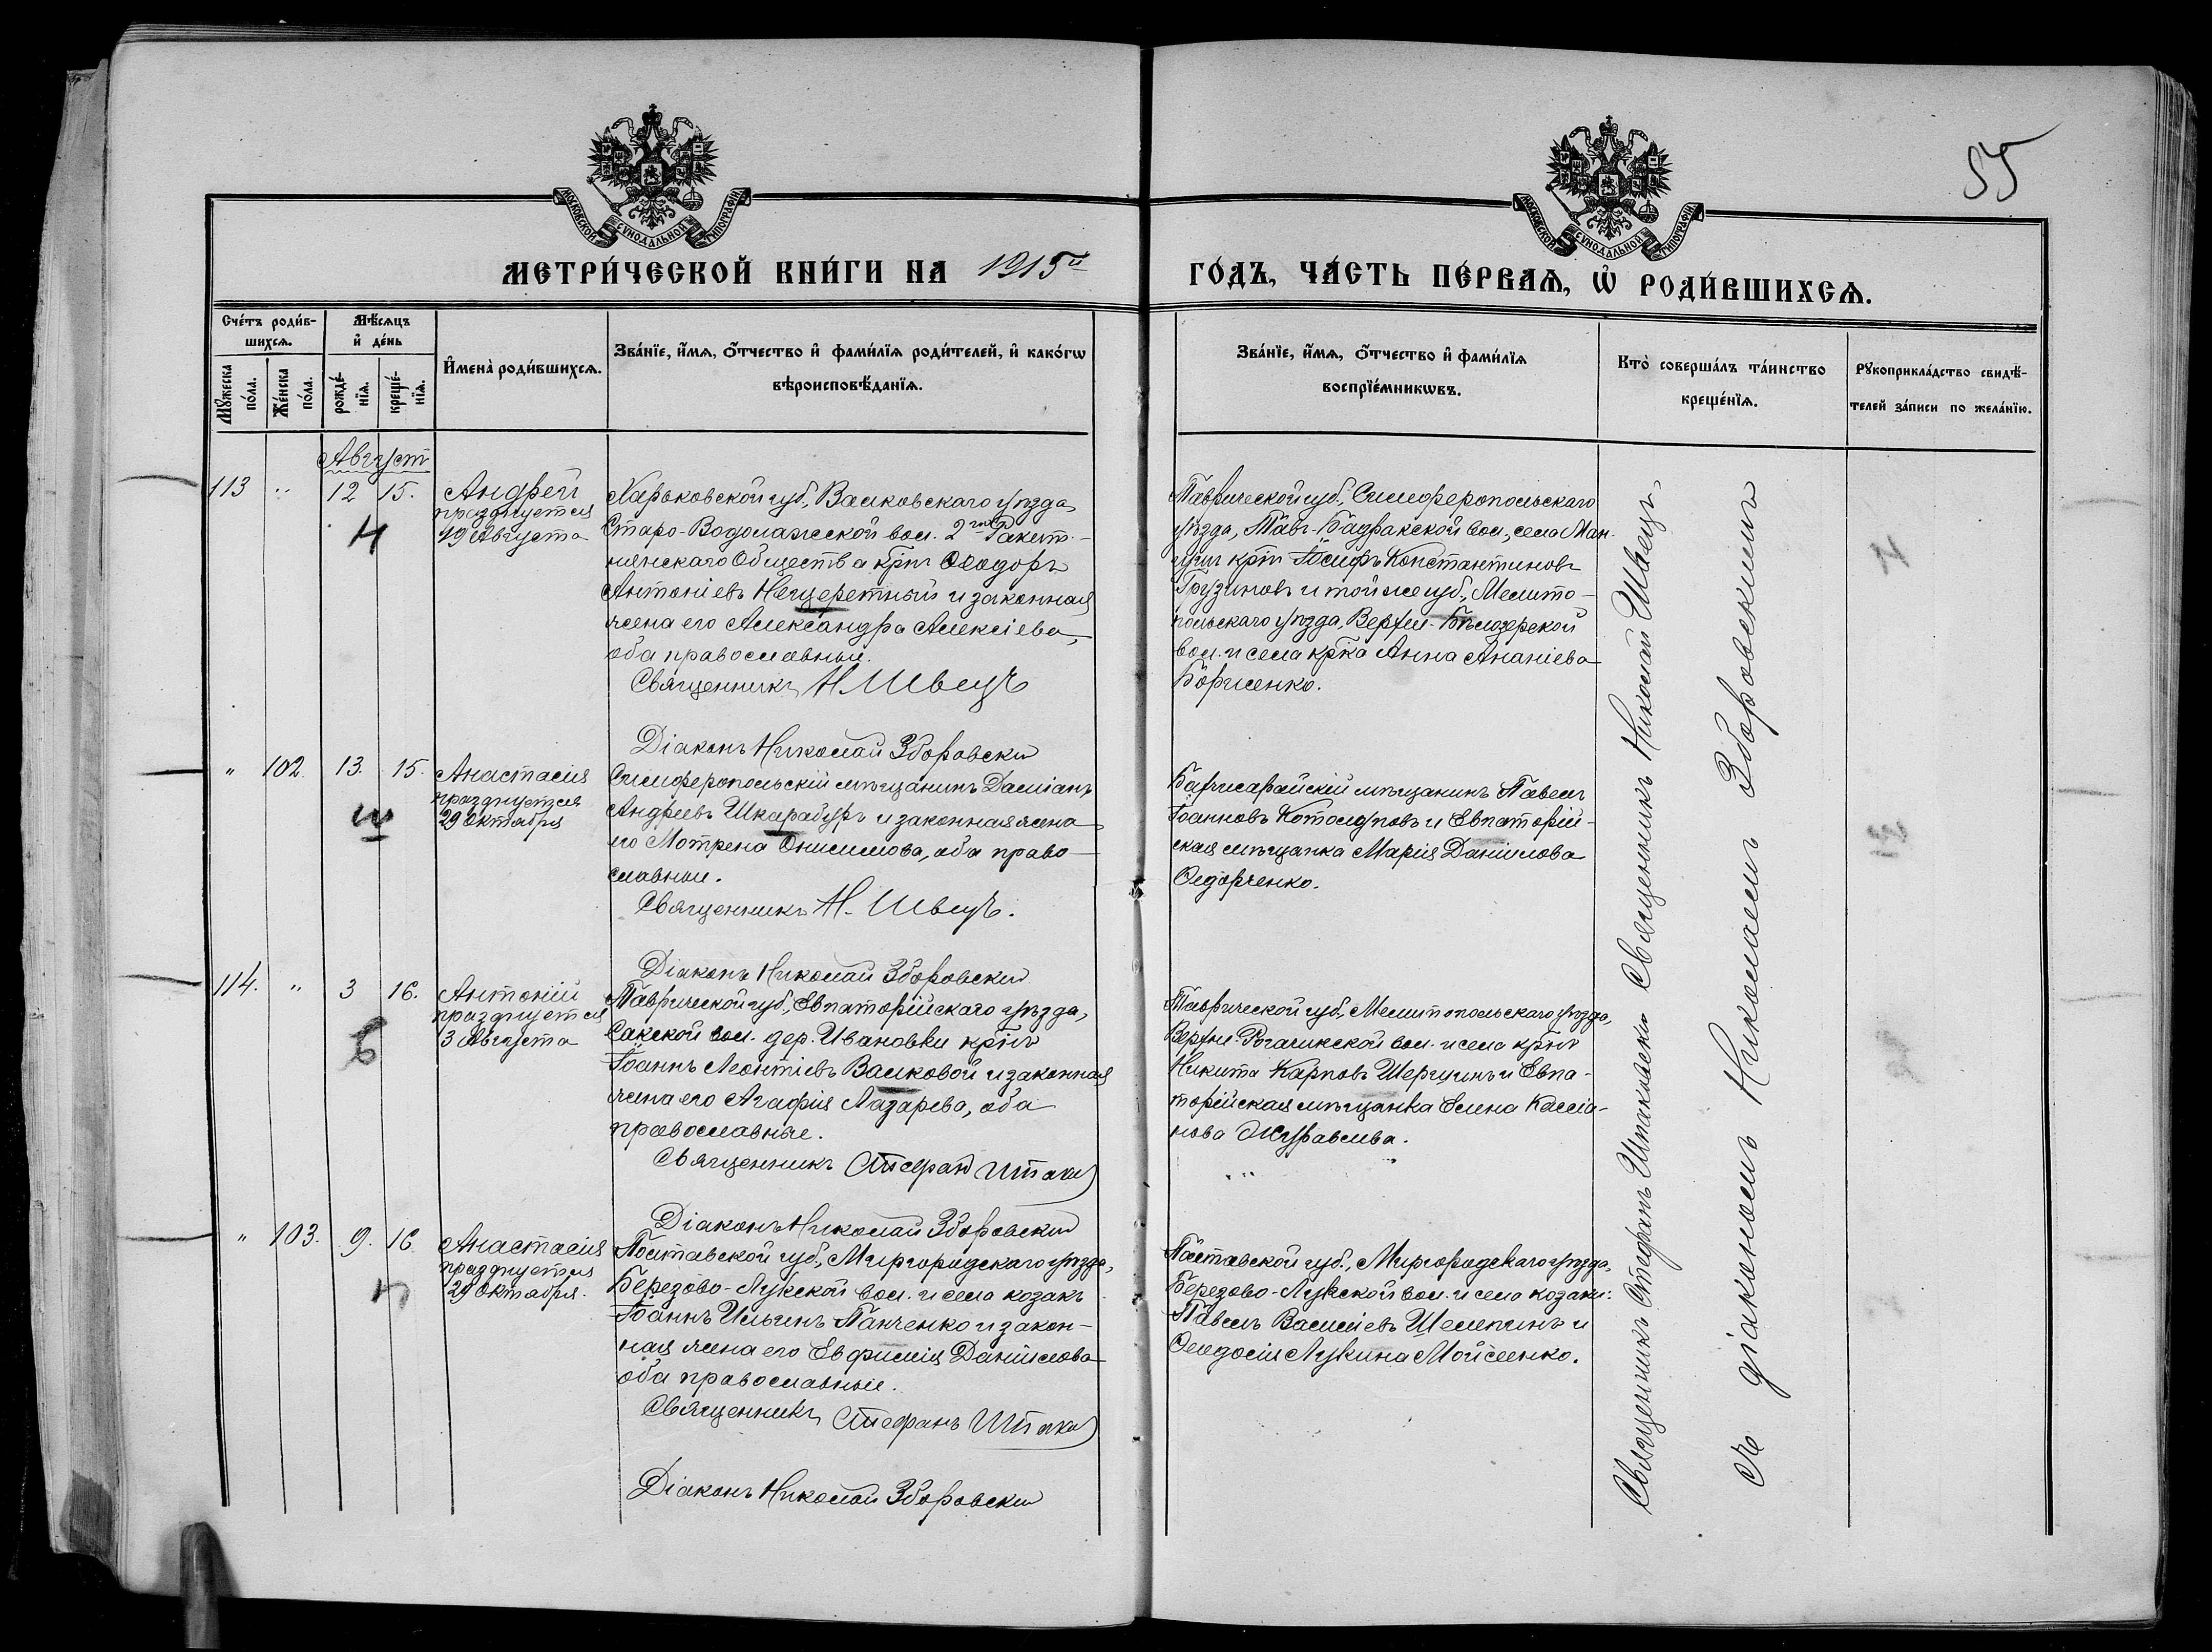 55
МОСКОВСКОЙ СѴНОДАЛЬНОЙ ТИПОГРАФІИ
МОСКОВСКОЙ СѴНОДАЛЬНОЙ ТИПОГРАФІИ
МЕТРИ́ЧЕСКОЙ КНИ́ГИ НА 1915й ГО́ДЪ, ЧА́СТЬ ПЕ́РВАѦ, Ѡ҆ РОДИ́ВШИХСѦ.
Сче́тъ роди́в-
шихсѧ.
Мꙋжеска по́ла.
Же́нска по́ла.
Мѣ́сѧцъ
и҆ де́нь
рожде́-
нїѧ.
креще́-
нїѧ.
И҆мена̀ роди́вшихсѧ.
Зва́нїе, и҆́мѧ, ѻ҆́тчество и҆ фами́лїѧ роди́телей, и҆ како́гѡ
вѣроисповѣ́данїѧ.
Зва́нїе, и҆́мѧ, ѻ҆́тчество и҆ фами́лїѧ
воспрїе́мникѡвъ.
Кто̀ соверша́лъ та́инство
креще́нїѧ.
Рꙋкоприкла́дство свидѣ́-
телей за́писи по жела́нїю.
Августъ
113 " 12 15.
Андрей
празднуется
19 Августа
Н
Харьковской губ., Валковскаго уѣзда,
Старо-Водолажской вол. 2го Ракит-
нянскаго Общества крнъ Ѳеодоръ
Антоніевъ Нещеретный и законная
жена его Александра Алексіева,
оба православные.
Священникъ Н. Швецъ
Діаконъ Николай Зборовскій
Таврической губ., Симферопольскаго
уѣзда, Тавъ-Бадракской вол., села Ман-
гушъ крнъ Іосифъ Константиновъ
Грузиновъ и той же губ., Мелито-
польскаго уѣзда, Верхне-Бѣлозерской
вол. и села крка Анна Ананіева
Борисенко.
" 102 13. 15.
Анастасія
празднуется
29 Октября
Ш
Симферопольскій мѣщанинъ Даміанъ
Андреевъ Шкарабуръ и законная жена
его Мотрена Онисимова, оба право-
славные.
Священникъ Н. Швецъ.
Діаконъ Николай Зборовскій
Бахчисарайскій мѣщанинъ Павелъ
Іоанновъ Котолуповъ и Евпаторій-
ская мѣщанка Марія Даніилова
Ѳедорченко.
114. " 3 16.
Антоній
празднуется
3 Августа
Таврической губ., Евпаторійскаго уѣзда,
Сакской вол. дер. Ивановки крнъ
Іоаннъ Леонтіевъ Валковой и законная
жена его Агафія Лазарева, оба
православные.
Священникъ Стефанъ Шпаки
Діаконъ Николай Зборовскій
Таврической губ., Мелитопольскаго уѣзда,
Верхне-Рогачикской вол. и села крнъ
Никита Карповъ Шершунъ и Евпа-
торійская мѣщанка Елена Кассіа-
нова Журавлева.
" 103. 9. 16
Анастасія
празднуется
29 Октября.
П
Полтавской губ., Миргородскаго уѣзда,
Березово-Лукской вол. и села козакъ
Іоаннъ Ильинъ Панченко и закон-
ная жена его Евфимія Даніилова
оба православные.
Священникъ Стефанъ Шпаки
Діаконъ Николай Зборовскій
Полтавской губ., Миргородскаго уѣзда,
Березово-Лукской вол. и села козаки:
Павелъ Василіевъ Шелепинъ и
Ѳеодосія Лукина Мойсеенко.
Священникъ Стефанъ Шпаковскій Священникъ Николай Швецъ,
съ діакономъ Николаемъ Зборовскимъ